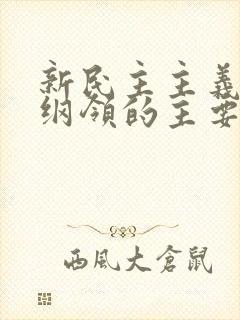 新民主主義
纲領的主要
西風大倉鼠